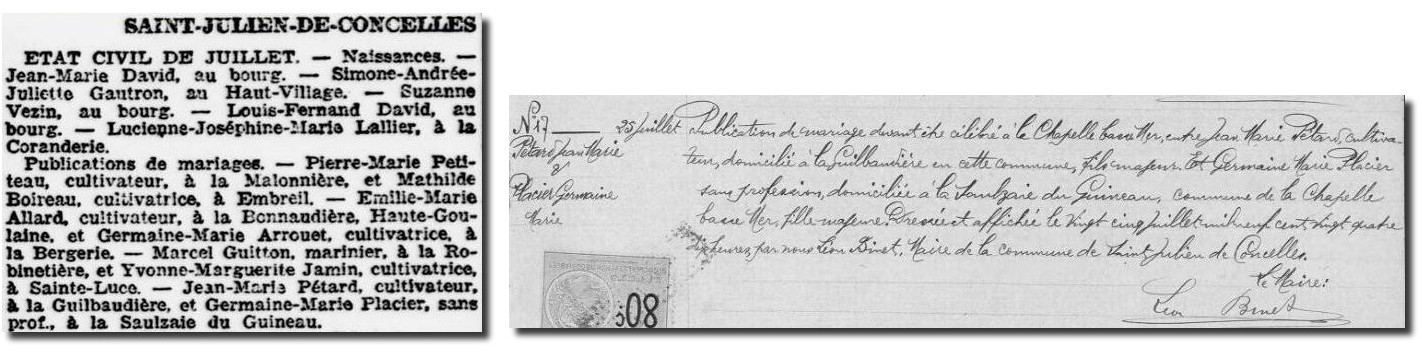 SAINT-JULIEN-DE-CONCELLES
ETAT CIVIL DE JUILLET. — Naissances. —
Jean-Marie David, au bourg. — Simone-Andrée-
Juliette Gautron, au Haut-Village. — Suzanne
Vezin, au bourg. — Louis-Fernand David, au
bourg. — Lucienne-Joséphine-Marie Lallier, à la
Coranderie.
Publications de mariages. — Pierre-Marie Peti-
teau, cultivateur, à la Malonnière, et Mathilde
Boireau, cultivatrice, à Embreil. — Emilie-Marie
Allard, cultivateur, à la Bonnaudière, Haute-Gou-
laine, et Germaine-Marie Arrouet, cultivatrice, à
la Bergerie. — Marcel Guitton, marinier, à la Ro-
binetière, et Yvonne-Marguerite Jamin, cultivatrice,
à Sainte-Luce. — Jean-Marie Pétard, cultivateur,
à la Guilbaudière, et Germaine-Marie Placier, sans
prof., à la Saulzaie du Guineau.
N° 17
Pétard Jean Marie
&
Placier Germaine
Marie
25 juillet Publication de mariage devant être célébré à la Chapelle basse Mer, entre Jean Marie Pétard, cultiva-
teur, domicilié à la Guilbaudière en cette commune, fils majeur. Et Germaine Marie Placier
sans profession, domiciliée à la Saulzaie du Guineau, commune de la Chapelle
basse Mer, fille majeure. Dressée et affichée le vingt cinq juillet mil neuf cent vingt quatre
dix heures, par nous Léon Binet, Maire de la commune de Saint Julien de Concelles.
Le Maire:
Léon Binet
08